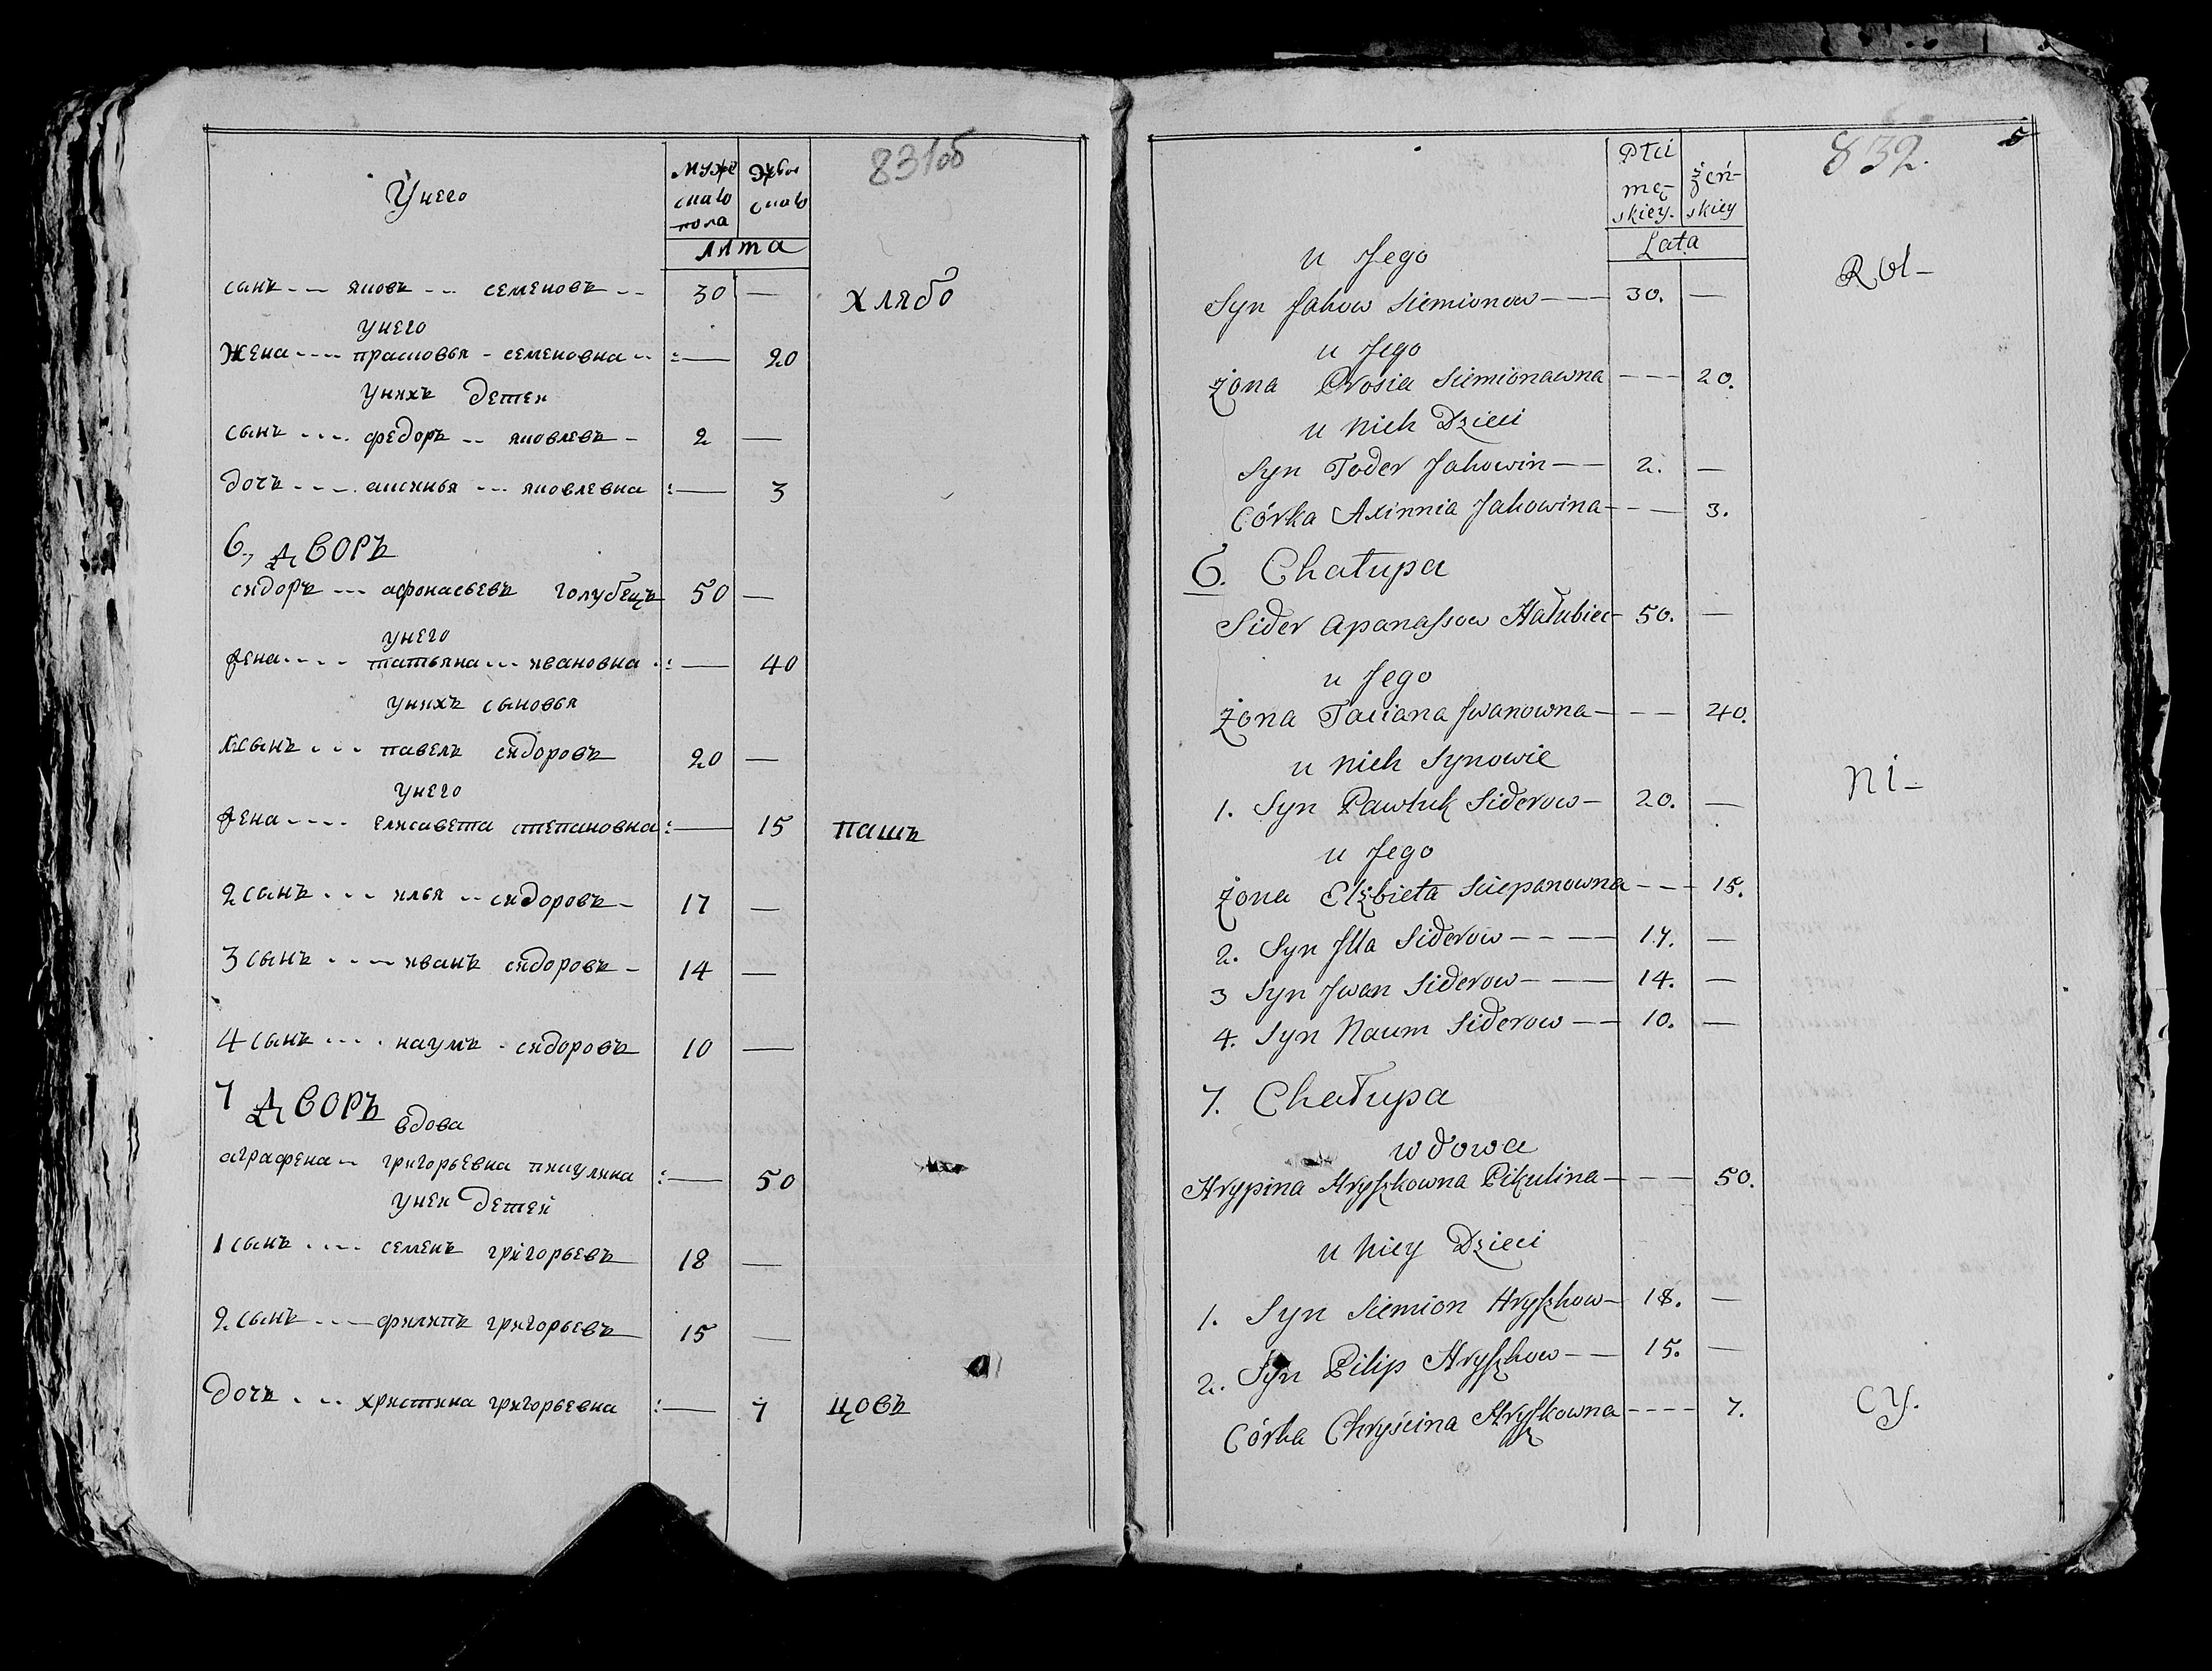 831об
Унего
мужескаго пола
женскаго
лята
сынъ --- яковъ --- семеновъ -- 30 —
хлябо
унего
жена ---- прасковья - семеновна -- :— 20
унихъ детеи
сынъ --- федоръ -- яковлевъ - 2 —
дочь --- аксинья --- яковлевна :— 3
6, дворъ
сидоръ --- афонасьевъ голубецъ 50 —
унего
жена ---- татьяна --- ивановна :— 40
унихъ сыновья
1 сынъ --- павелъ сидоровъ 20 —
унего
жена ---- елисавета степановна :— 15
пашъ
2 сынъ --- илья -- сидоровъ - 17 —
3 сынъ ---- иванъ сидоровъ - 14 —
4 сынъ --- наумъ - сидоровъ 10 —
7 дворъ
вдова
аграфена -- григорьевна пикулина :— 50
унеи детей
1 сынъ ---- семенъ григорьевъ 18 —
2 сынъ ---- филипъ григорьевъ 15 —
дочь --- христина григорьевна :— 7
цовъ
832.
5
Płci
mę-
skiey.
żeń-
skiey
Lata
u Jego
Rol-
Syn Jakow Siemionow --- 30. —
u Jego
żona Prosia Siemionawna --- 20.
u nich Dzieci
Syn Toder Jakowin --- 2. —
Córka Axinnia Jakowina --- 3.
6. Chałupa
Sider Apanassow Hałubiec- 50. —
u Jego
żona Taciana Jwanowna --- 40.
u nich Synowie
ni-
1. Syn Pawluk Siderow - 20. —
u Jego
żona Elżbieta Sciepanowna --- 15.
2. Syn Jlla Siderow ---- 17. —
3 Syn Jwan Siderow --- 14. —
4. Syn Naum Siderow --- 10. —
7. Chałupa
wdowa
Hrypina Hryszkowna Pikulina --- 50.
u niey Dzieci
1. Syn Siemion Hryszkow - 18. —
2. Syn Pilip Hryszkow --- 15. —
Córka Chryścina Hryszkowna ---- 7.
cy.